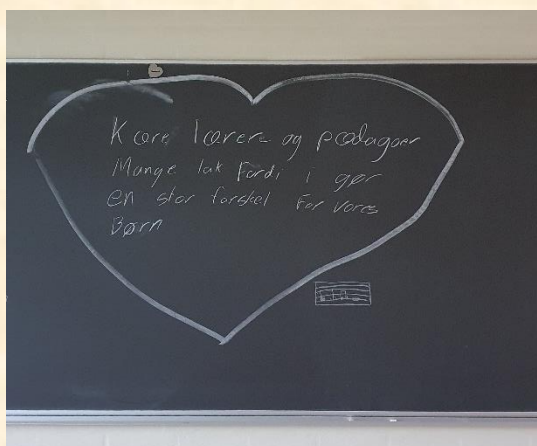 Kære lærere og pædagoer
Mange tak Fordi i gør
en stor forskel For vores
Børn